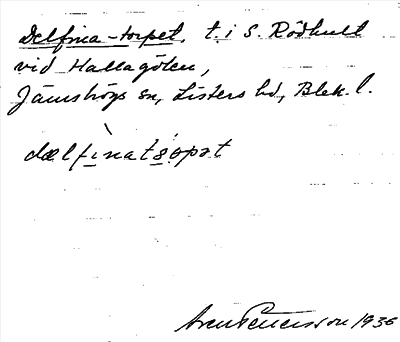 Delfina-torpet, t. i S. Rödhult
vid Hallagölen,
Jämshögs sn, Listers hd, Blek. l.
dælfìnatɔ̀rpət
Pettersson 1936